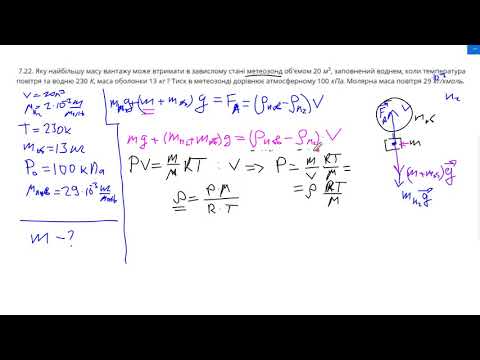 7.22. Яку найбільшу масу вантажу може втримати в завислому стані метеозонд об'ємом 20 м³, заповнений воднем, коли температура
повітря та водню 230 К, маса оболонки 13 кг ? Тиск в метеозонді дорівнює атмосферному 100 кПа. Молярна маса повітря 29 кг/кмоль.
V = 20м³
M_H₂ = 2·10⁻³ кг/моль
T = 230К
m_об = 13 кг
P₀ = 100 кПа
M_пов = 29·10⁻³ кг/моль
m - ?
(m + m_об) g = F_A = (ρ_пов - ρ_H₂) V
mg + (m_H₂ + m_об) g = (ρ_пов - ρ_H₂) V
PV = m/M RT : V => P = m/V RT/M =
= ρ RT/M
ρ = P·M / R·T
F_A
V
m_об
m
(m + m_об) g
m_H₂ g
H₂